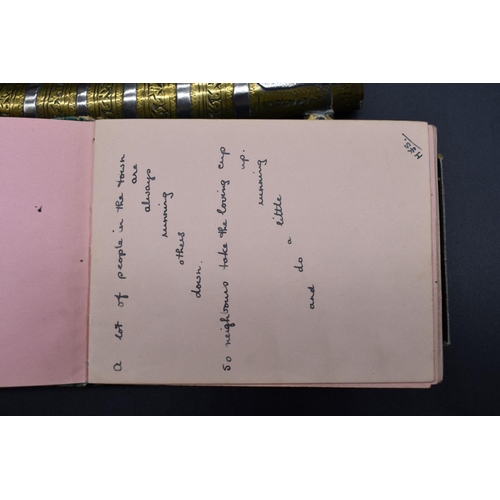 a lot of people in the town
are
always
running
others
down.
So neighbours take the loving cup
and do a little running up.